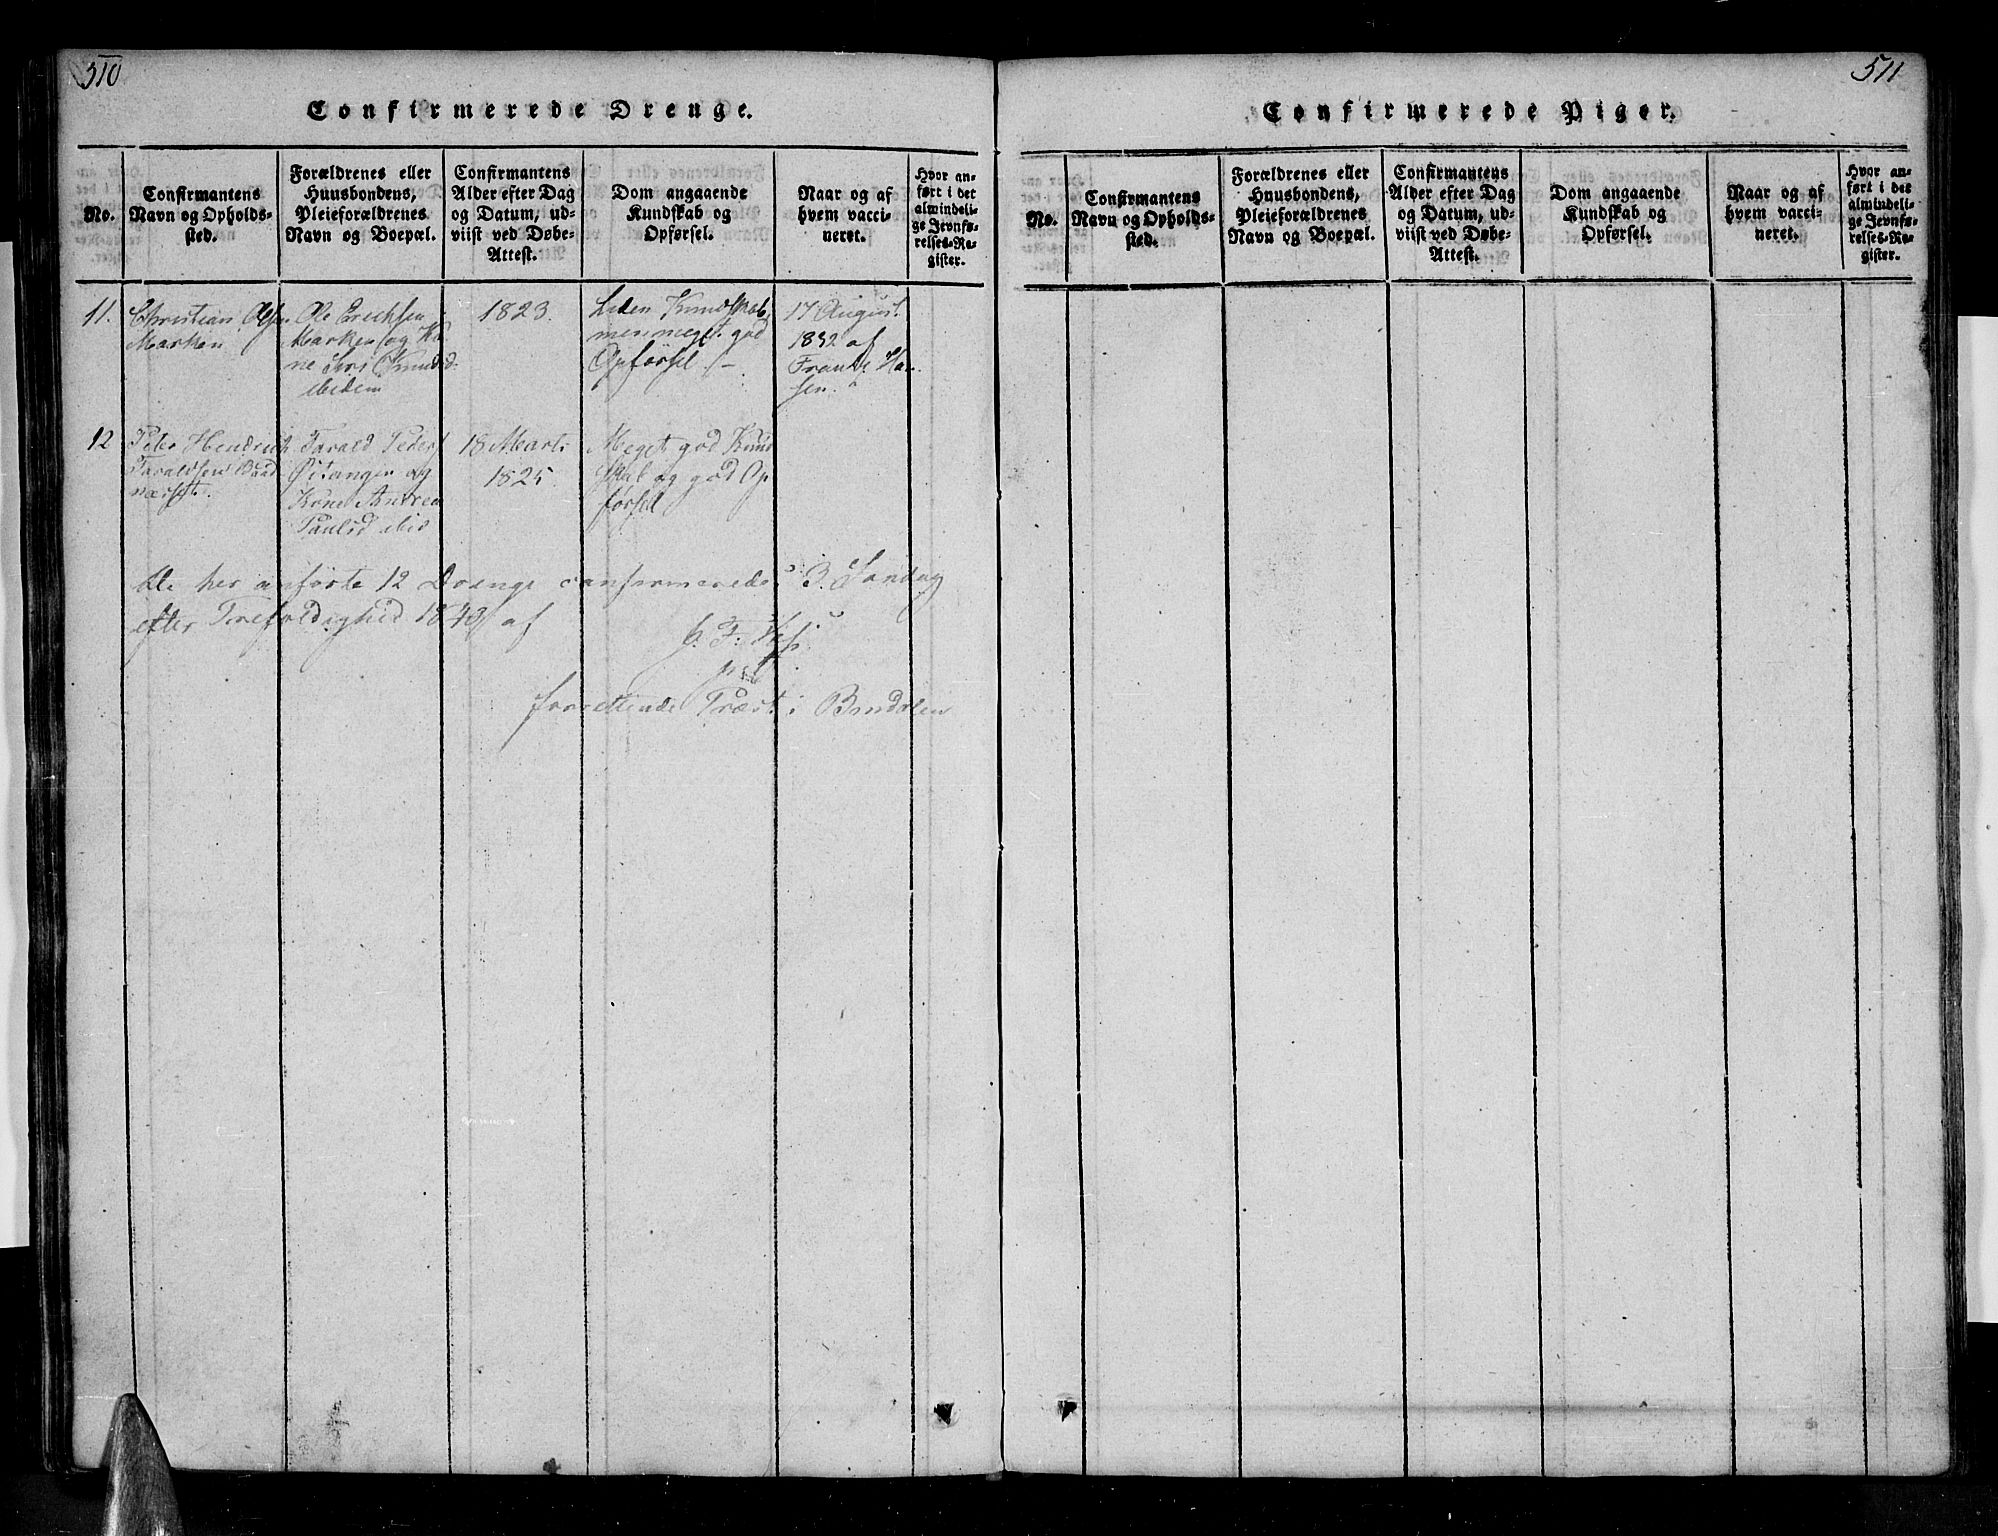 510
Confirmerede Drenge.
No.
Confirmantens
Navn og Opholds-
sted.
Forældrenes eller
Huusbondens,
Pleieforældrenes
Navn og Boepæl.
Confirmantens
Alder efter Dag
og Datum, ud-
viist ved Døbe-
Attest.
Dom angaaende
Kundskab og
Opførsel.
Naar og af
hvem vacci-
neret.
Hvor an-
ført i det
almindeli-
ge Jevnfø-
relses-Re-
gister.
11.
Christian Olsen
Marken
Ole Erichsen
Marken og Ko-
ne Siri Knudsd
ibidem
1823.
Liden Kundskab,
men meget god
Opførsel
17 August
1832 af
Frantz Han-
sen.
12
Peter Hendrich
Taraldsen
Tarald Peders
og
Kone Andrea
Paulsd ibid
18 Marts
1825.
Meget god Kund
skab og god Op
førsel
De her anførte 12 Drenge confirmerede 3. Søndag
efter Trefoldighed 1840 af
forrettende Præst i
511
Confirmerede Piger.
No.
Confirmantens
Navn og Opholds-
sted.
Forældrenes eller
Huusbondens,
Pleieforældrenes
Navn og Boepæl.
Confirmantens
Alder efter Dag
og Datum, ud-
viist ved Døbe-
Attest.
Dom angaaende
Kundskab og
Opførsel.
Naar og af
hvem vacci-
neret.
Hvor an-
ført i det
almindeli-
ge Jevnfø-
relses-Re-
gister.